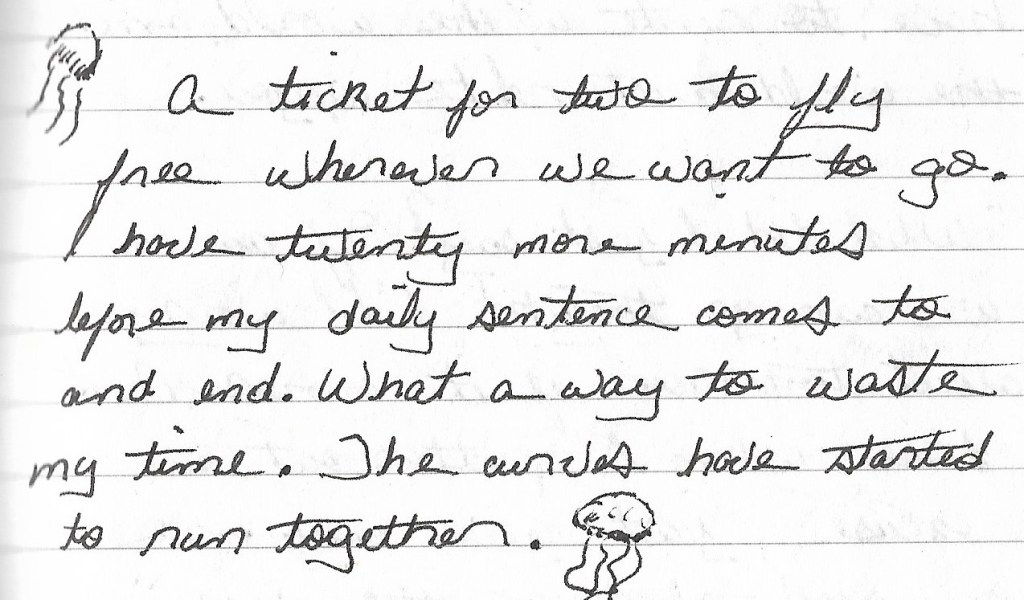 A ticket for two to fly
free wherever we want to go.
I have twenty more minutes
before my daily sentence comes to
and end. What a way to waste
my time. The curves have started
to run together.